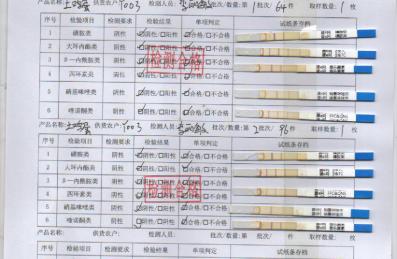 产品名称:土鸡蛋 供货农户:Y003 检测人员: 批次/数量:第1批次/64件 取样数量:1枚
序号 检验项目 检测要求 检验结果 单项判定 试纸条存档
1 磺胺类 阴性 ☑阴性/□阳性 ☑合格/□不合格
2 大环内酯类 阴性 ☑阴性/□阳性 ☑合格/□不合格
3 β一内酰胺类 阴性 ☑阴性/□阳性 ☑合格/□不合格
4 四环素类 阴性 ☑阴性/□阳性 ☑合格/□不合格
5 硝基咪唑类 阴性 ☑阴性/□阳性 ☑合格/□不合格
6 喹诺酮类 阴性 ☑阴性/□阳性 ☑合格/□不合格
检测合格
产品名称:土鸡蛋 供货农户:Y003 检测人员: 批次/数量:第2批次/96件 取样数量:1枚
序号 检验项目 检测要求 检验结果 单项判定 试纸条存档
1 磺胺类 阴性 ☑阴性/□阳性 ☑合格/□不合格
2 大环内酯类 阴性 ☑阴性/□阳性 ☑合格/□不合格
3 β一内酰胺类 阴性 ☑阴性/□阳性 ☑合格/□不合格
4 四环素类 阴性 ☑阴性/□阳性 ☑合格/□不合格
5 硝基咪唑类 阴性 ☑阴性/□阳性 ☑合格/□不合格
6 喹诺酮类 阴性 ☑阴性/□阳性 ☑合格/□不合格
检测合格
产品名称: 供货农户: 检测人员: 批次/数量:第 批次/ 件 取样数量: 枚
序号 检验项目 检测要求 检验结果 单项判定 试纸条存档